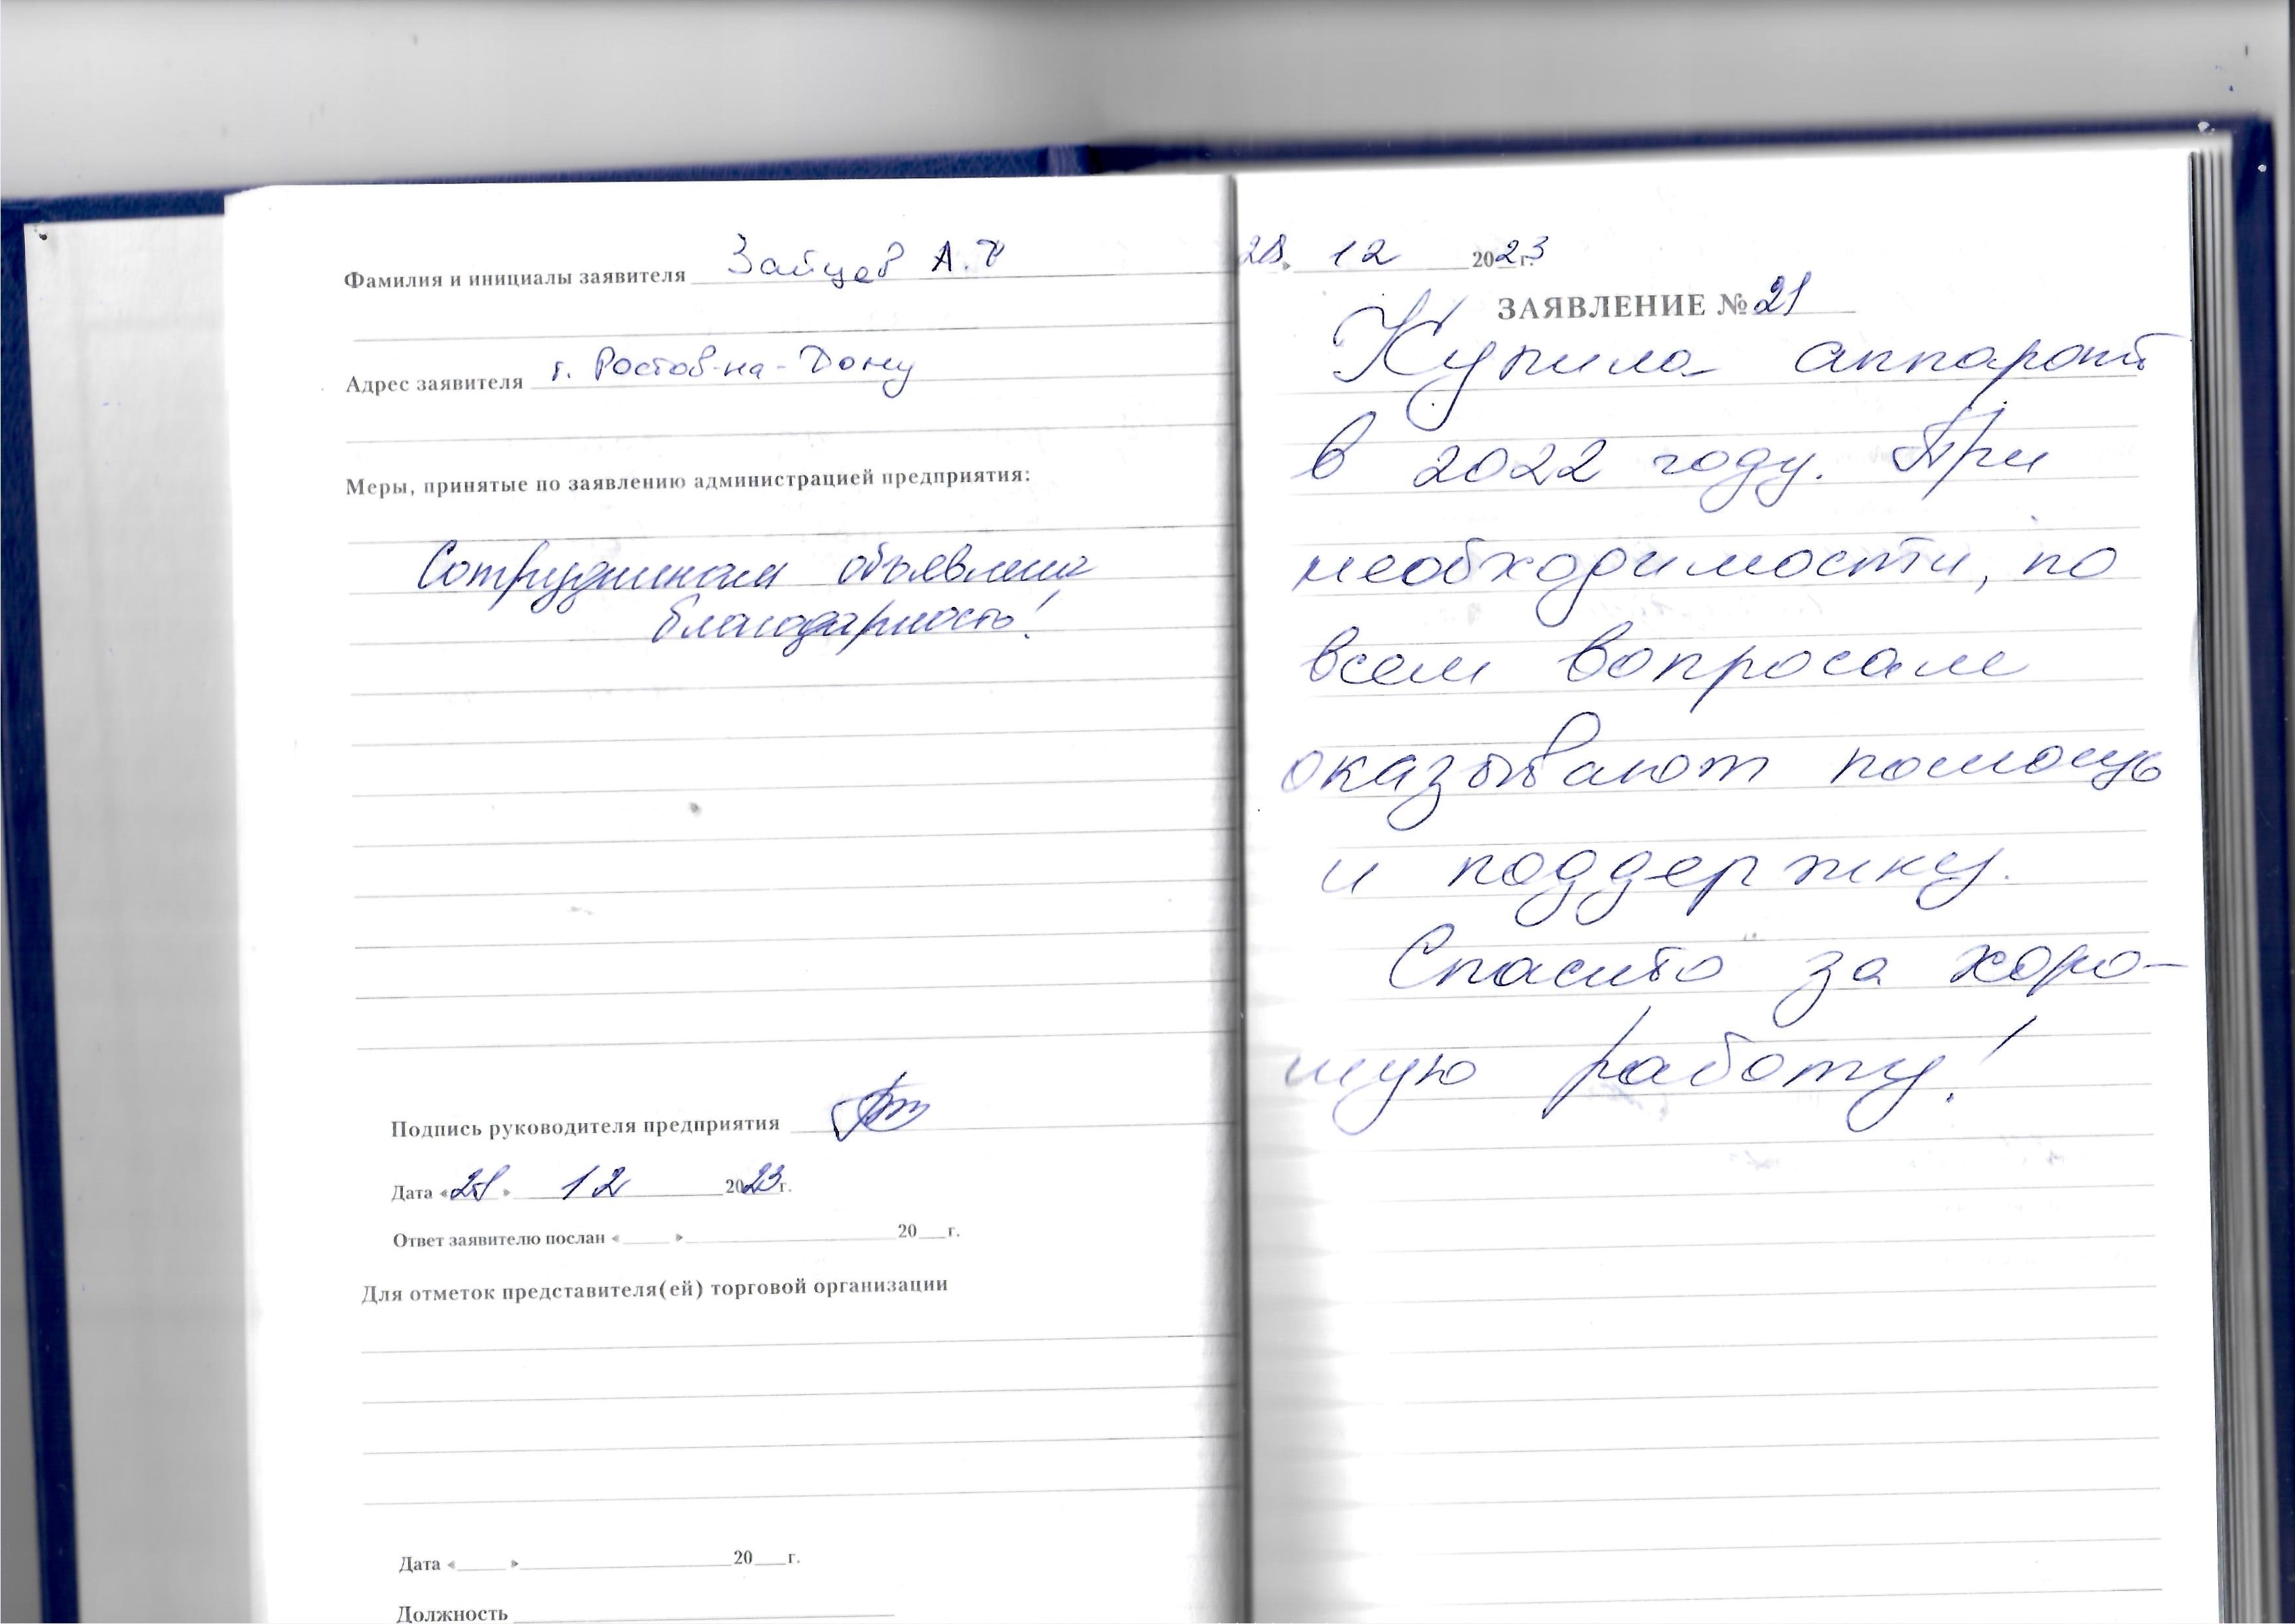 Фамилия и инициалы заявителя Зайцев А.
Адрес заявителя г. Ростов-на-Дону
Меры, принятые по заявлению администрацией предприятия:
Сотрудникам объявлена
благодарность!
Подпись руководителя предприятия
Дата « » 12 2023г.
Ответ заявителю послан « » 20 г.
Для отметок представителя(ей) торговой организации
Дата « » 20 г.
Должность
28. 12 2023 г.
ЗАЯВЛЕНИЕ № 21
Купила аппарат
в 2022 году. При
необходимости, по
всем вопросам
оказывают помощь
и поддержку.
Спасибо за хоро-
шую работу!